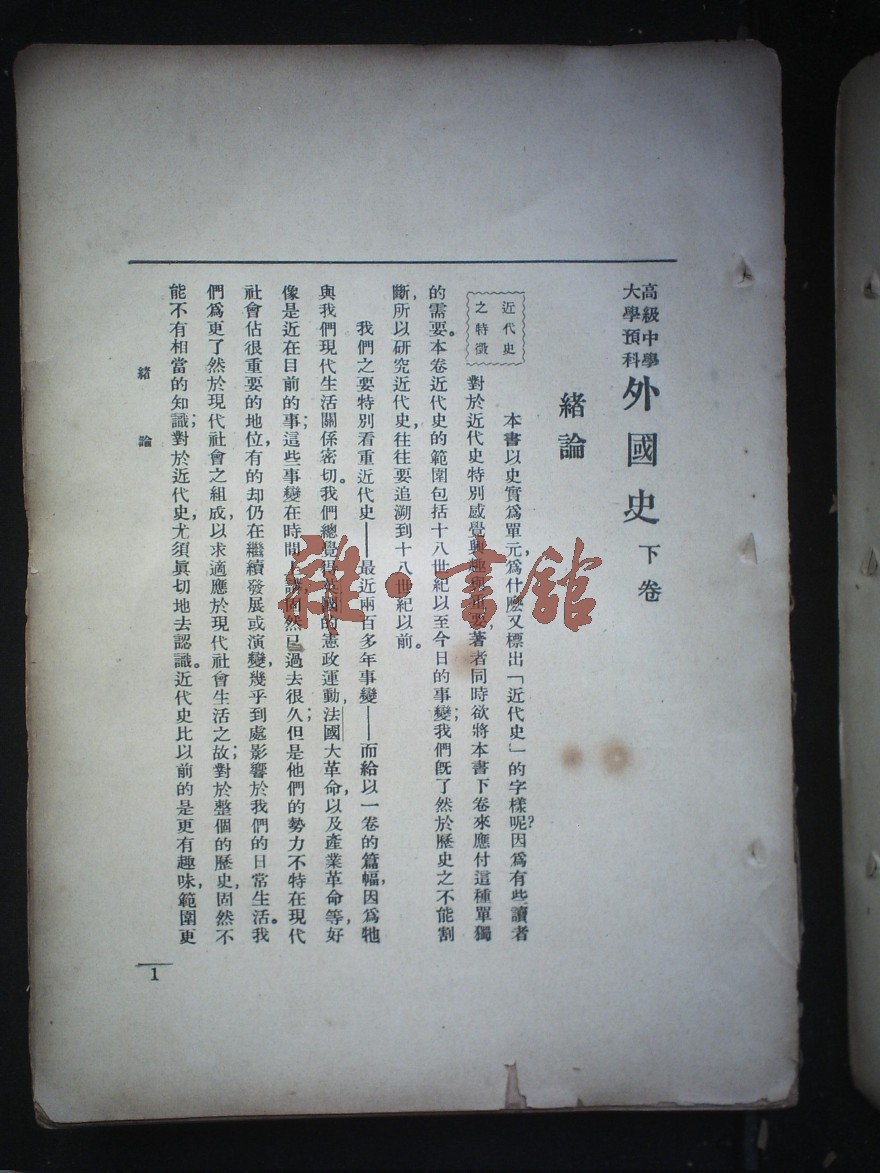 高級中學
大學預科
外國史 下卷
緒論
近代史
之特徵
本書以史實爲單元,爲什麼又標出「近代史」的字樣呢?因爲有些讀者
對於近代史特別感覺興趣與重要,著者同時欲將本書下卷來應付這種單獨
的需要。本卷近代史的範圍包括十八世紀以至今日的事變;我們既了然於歷史之不能割
斷,所以研究近代史,往往要追溯到十八世紀以前。
我們之要特別看重近代史——最近兩百多年事變——而給以一卷的篇幅,因爲牠
與我們現代生活關係密切。我們總覺得英國的憲政運動,法國大革命,以及產業革命等,好
像是近在目前的事;這些事變在時間上講,固然已過去很久;但是他們的勢力不特在現代
社會佔很重要的地位,有的却仍在繼續發展或演變,幾乎到處影響於我們的日常生活。我
們爲更了然於現代社會之組成,以求適應於現代社會生活之故;對於整個的歷史,固然不
能不有相當的知識;對於近代史,尤須眞切地去認識。近代史比以前的是更有趣味,範圍更
緒論
1
雜·書館